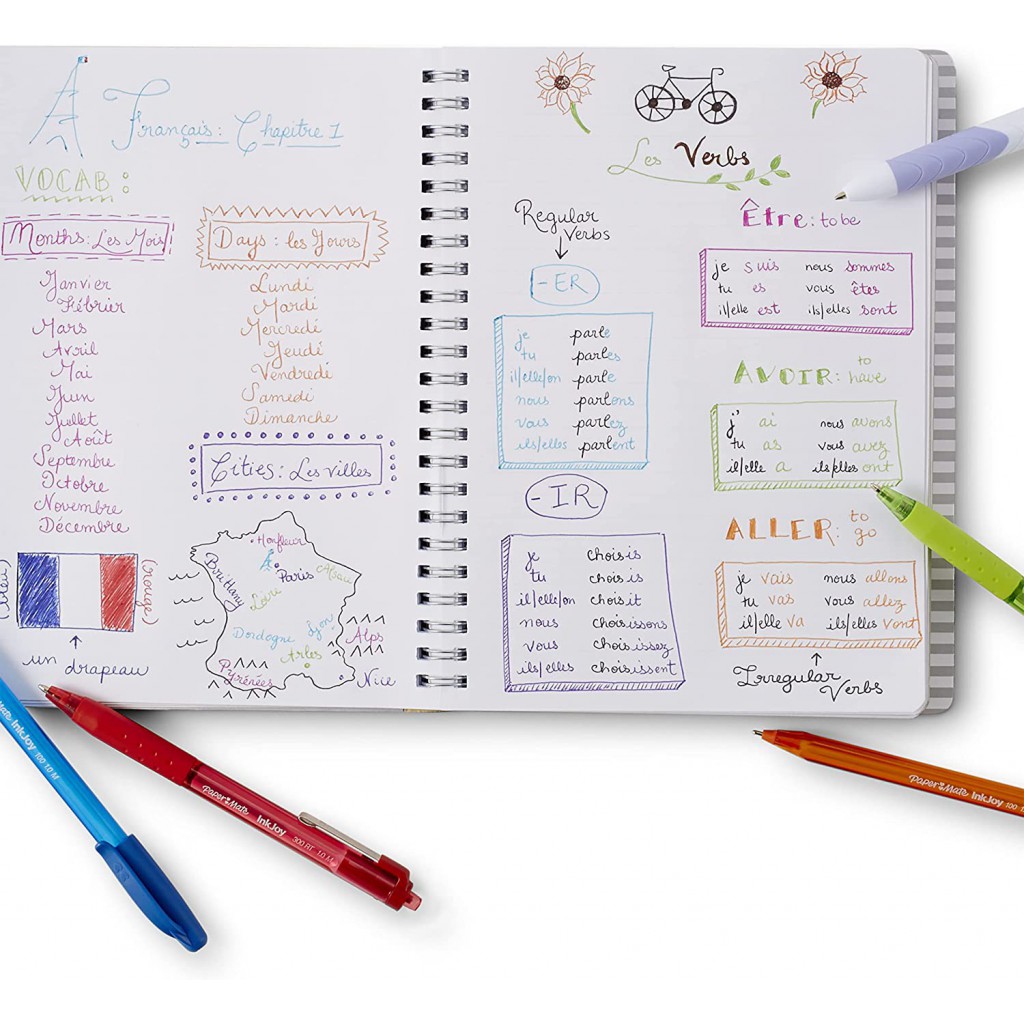 Français: Chapitre 1
VOCAB:
Months: Les Mois
Janvier
Fébrier
Mars
Avril
Mai
Juin
Juillet
Août
Septembre
Octobre
Novembre
Décembre
Days: les Jours
Lundi
Mardi
Mercredi
Jeudi
Vendredi
Samedi
Dimanche
Cities: Les villes
(bleu)
(rouge)
un drapeau
Honfleur
Brittany
Paris
Alsau
Loire
Dordogne
Lyon
Alps
Arles
Pyrénées
Nice
Les Verbs
Regular
Verbs
-ER
je parle
tu parles
il/elle/on parle
nous parlons
vous parlez
ils/elles parlent
-IR
je choisis
tu choisis
il/elle/on choisit
nous choisissons
vous choisissez
ils/elles choisissent
Être: to be
je suis nous sommes
tu es vous êtes
il/elle est ils/elles sont
AVOIR: to have
j' ai nous avons
tu as vous avez
il/elle a ils/elles ont
ALLER: to go
je vais nous allons
tu vas vous allez
il/elle va ils/elles vont
Irregular
Verbs
Mate InkJoy 100 1.0 M
Paper Mate InkJoy 300 RT 1.0 M
Paper Mate InkJoy 100 1